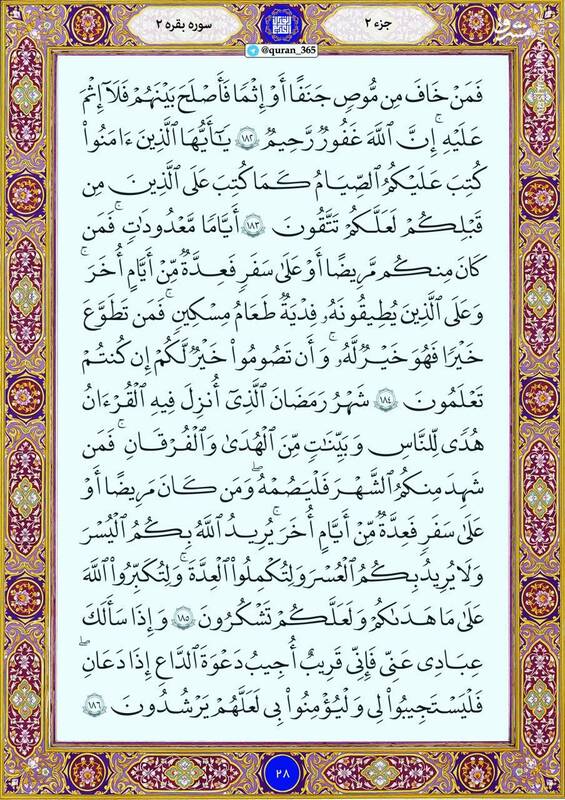 جزء ۲
سوره بقره ۲
@quran_365
مشرق
فَمَنْ خَافَ مِن مُّوصٍ جَنَفًا أَوْ إِثْمًا فَأَصْلَحَ بَيْنَهُمْ فَلَآ إِثْمَ
عَلَيْهِ ۚ إِنَّ ٱللَّهَ غَفُورٌ رَّحِيمٌ ۝١٨٢ يَـٰٓأَيُّهَا ٱلَّذِينَ ءَامَنُوا۟
كُتِبَ عَلَيْكُمُ ٱلصِّيَامُ كَمَا كُتِبَ عَلَى ٱلَّذِينَ مِن
قَبْلِكُمْ لَعَلَّكُمْ تَتَّقُونَ ۝١٨٣ أَيَّامًا مَّعْدُودَٰتٍ ۚ فَمَن
كَانَ مِنكُم مَّرِيضًا أَوْ عَلَىٰ سَفَرٍ فَعِدَّةٌ مِّنْ أَيَّامٍ أُخَرَ ۚ
وَعَلَى ٱلَّذِينَ يُطِيقُونَهُۥ فِدْيَةٌ طَعَامُ مِسْكِينٍ ۖ فَمَن تَطَوَّعَ
خَيْرًا فَهُوَ خَيْرٌ لَّهُۥ ۚ وَأَن تَصُومُوا۟ خَيْرٌ لَّكُمْ إِن كُنتُمْ
تَعْلَمُونَ ۝١٨٤ شَهْرُ رَمَضَانَ ٱلَّذِىٓ أُنزِلَ فِيهِ ٱلْقُرْءَانُ
هُدًى لِّلنَّاسِ وَبَيِّنَـٰتٍ مِّنَ ٱلْهُدَىٰ وَٱلْفُرْقَانِ ۚ فَمَن
شَهِدَ مِنكُمُ ٱلشَّهْرَ فَلْيَصُمْهُ ۖ وَمَن كَانَ مَرِيضًا أَوْ
عَلَىٰ سَفَرٍ فَعِدَّةٌ مِّنْ أَيَّامٍ أُخَرَ ۗ يُرِيدُ ٱللَّهُ بِكُمُ ٱلْيُسْرَ
وَلَا يُرِيدُ بِكُمُ ٱلْعُسْرَ وَلِتُكْمِلُوا۟ ٱلْعِدَّةَ وَلِتُكَبِّرُوا۟ ٱللَّهَ
عَلَىٰ مَا هَدَىٰكُمْ وَلَعَلَّكُمْ تَشْكُرُونَ ۝١٨٥ وَإِذَا سَأَلَكَ
عِبَادِى عَنِّى فَإِنِّى قَرِيبٌ ۖ أُجِيبُ دَعْوَةَ ٱلدَّاعِ إِذَا دَعَانِ ۖ
فَلْيَسْتَجِيبُوا۟ لِى وَلْيُؤْمِنُوا۟ بِى لَعَلَّهُمْ يَرْشُدُونَ ۝١٨٦
۲۸